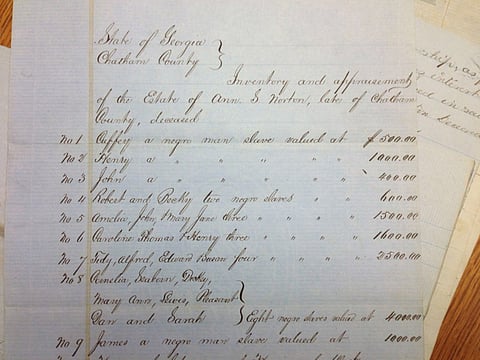 State of Georgia }
Chatham County }
Inventory and appraisement
of the Estate of Ann. S. Norton, late of Chatham
County, deceased
No 1 Cuffey a negro man slave valued at $ 500.00
No 2 Henry a " " " " " 1000.00
No 3 John a " " " " " 400.00
No 4 Robert and Becky two negro slaves " " 600.00
No 5 Amelia, John, Mary Jane three " " " " 1500.00
No 6 Caroline Thomas & Henry three " " " " 1600.00
No 7 Tidy, Alfred, Edward & four " " " 2500.00
No 8 Cornelia, Seaborn,
Mary Ann, Pleasant
Dan and Sarah } Eight negro slaves valued at 4000.00
No 9 James a negro man slave valued at 1000.00